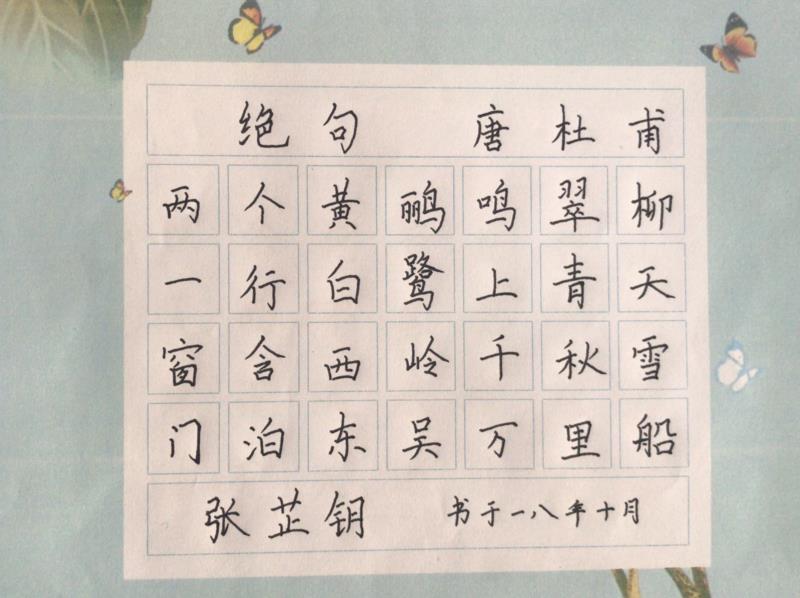 绝句 唐 杜甫
两个黄鹂鸣翠柳
一行白鹭上青天
窗含西岭千秋雪
门泊东吴万里船
张芷钥 书于一八年十月